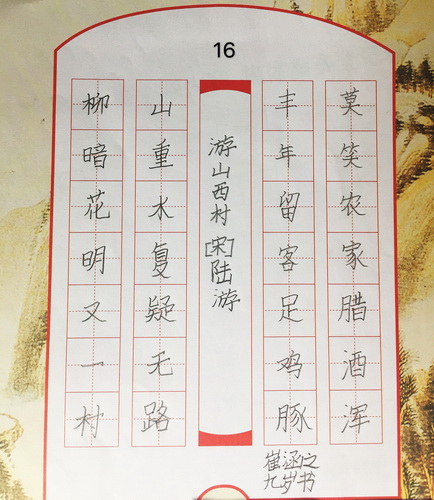 16
莫笑农家腊酒浑
丰年留客足鸡豚
游山西村[宋]陆游
山重水复疑无路
柳暗花明又一村
崔涵之
九岁书